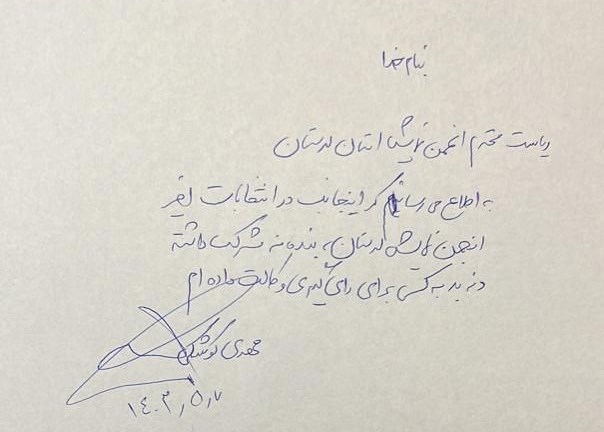 بنام خدا
ریاست محترم انجمن نمایش استان لرستان
به اطلاع می رسانم که اینجانب در انتخابات اخیر
انجمن نمایش لرستان، بنده نه شرکت داشته
و نه به کسی برای رای گیری وکالت داده ام
مهدی کوشکی
۱۴۰۳٫۵٫۷